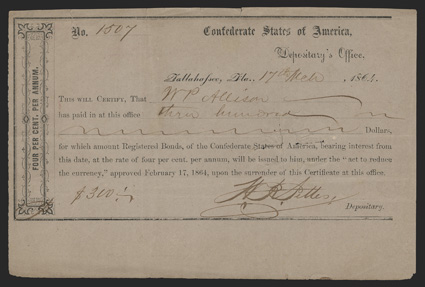 FOUR PER CENT. PER ANNUM.
No. 1807
Confederate States of America,
Depositary's Office,
Tallahassee, Fla., 17th Mch 1864.
THIS WILL CERTIFY, That W P Allison
has paid in at this office three hundred
Dollars,
for which amount Registered Bonds, of the Confederate States of America, bearing interest from
this date, at the rate of four per cent. per annum, will be issued to him, under the "act to reduce
the currency," approved February 17, 1864, upon the surrender of this Certificate at this office.
$300.
Depositary.